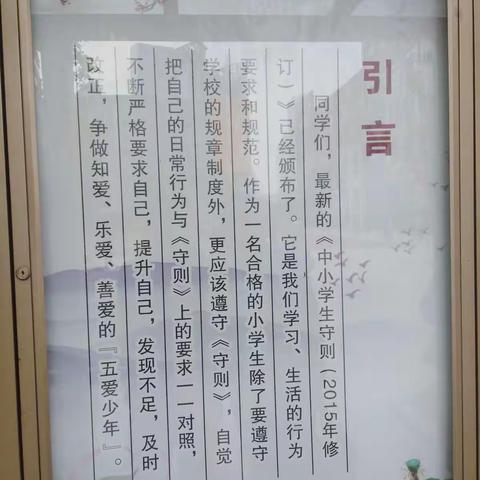 引言
同学们，最新的《中小学生守则（2015年修
订）》已经颁布了。它是我们学习、生活的行为
要求和规范。作为一名合格的小学生除了要遵守
学校的规章制度外，更应该遵守《守则》，自觉
把自己的日常行为与《守则》上的要求一一对照，
不断严格要求自己，提升自己，发现不足，及时
改正，争做知爱、乐爱、善爱的『五爱少年』。